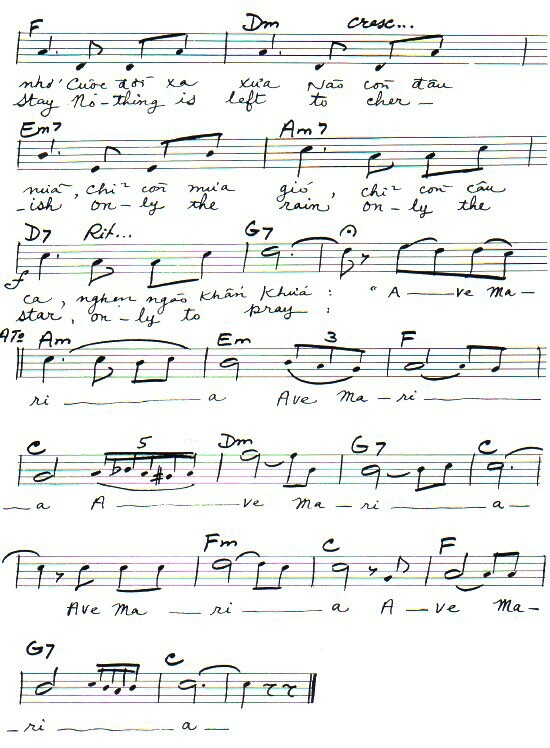 F Dm cresc...
nhớ Cuộc đời xa xưa Nào còn đâu
Stay No-thing is left to cher-
Em7 Am7
nữa, chỉ còn mưa gió, chỉ còn câu
-ish on-ly the rain on-ly the
D7 Rit... G7
f
ca, nghẹn ngào khấn khứa : "A — ve Ma-
star, on-ly to pray :
ATº Am Em 3 F
ri — a Ave Ma-ri —
C 5 Dm G7 C
— a A — ve Ma-ri — a —
Fm C F
Ave Ma — ri — a A — ve Ma-
G7 C
-ri — a —